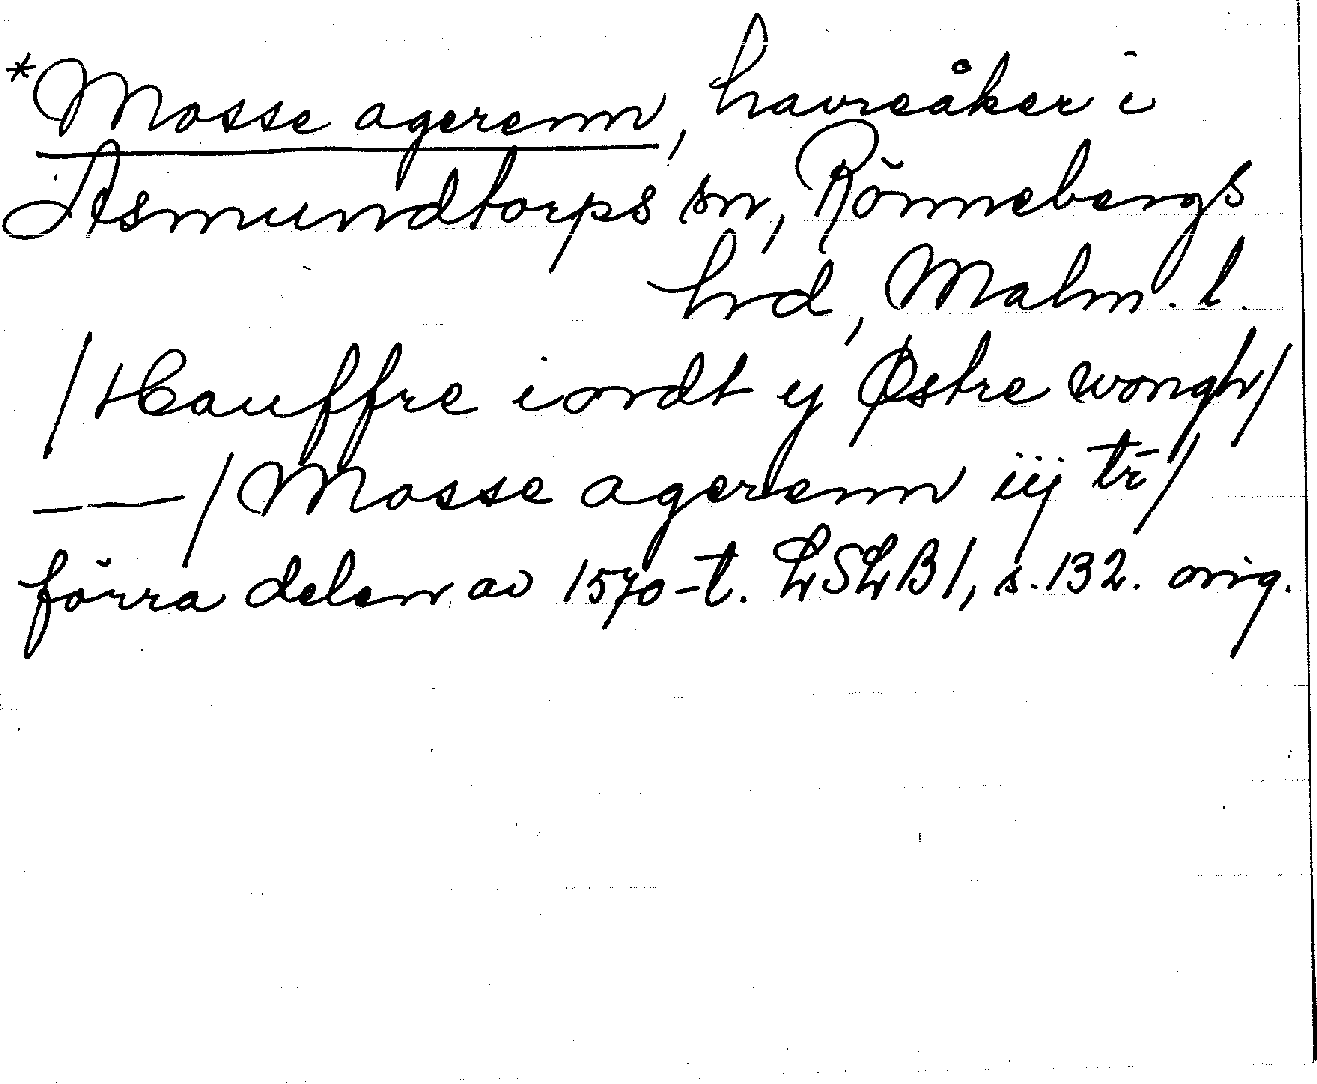 *Mosse agerenn, havreåker i
Asmundtorps sn, Rönnebergs
hrd, Malm. l.
/Hauffre iordt ij Østre wongh/
— — /Mosse agerenn iij tr̄/
förra delen av 1570-t. LSLB 1, s. 132. orig.